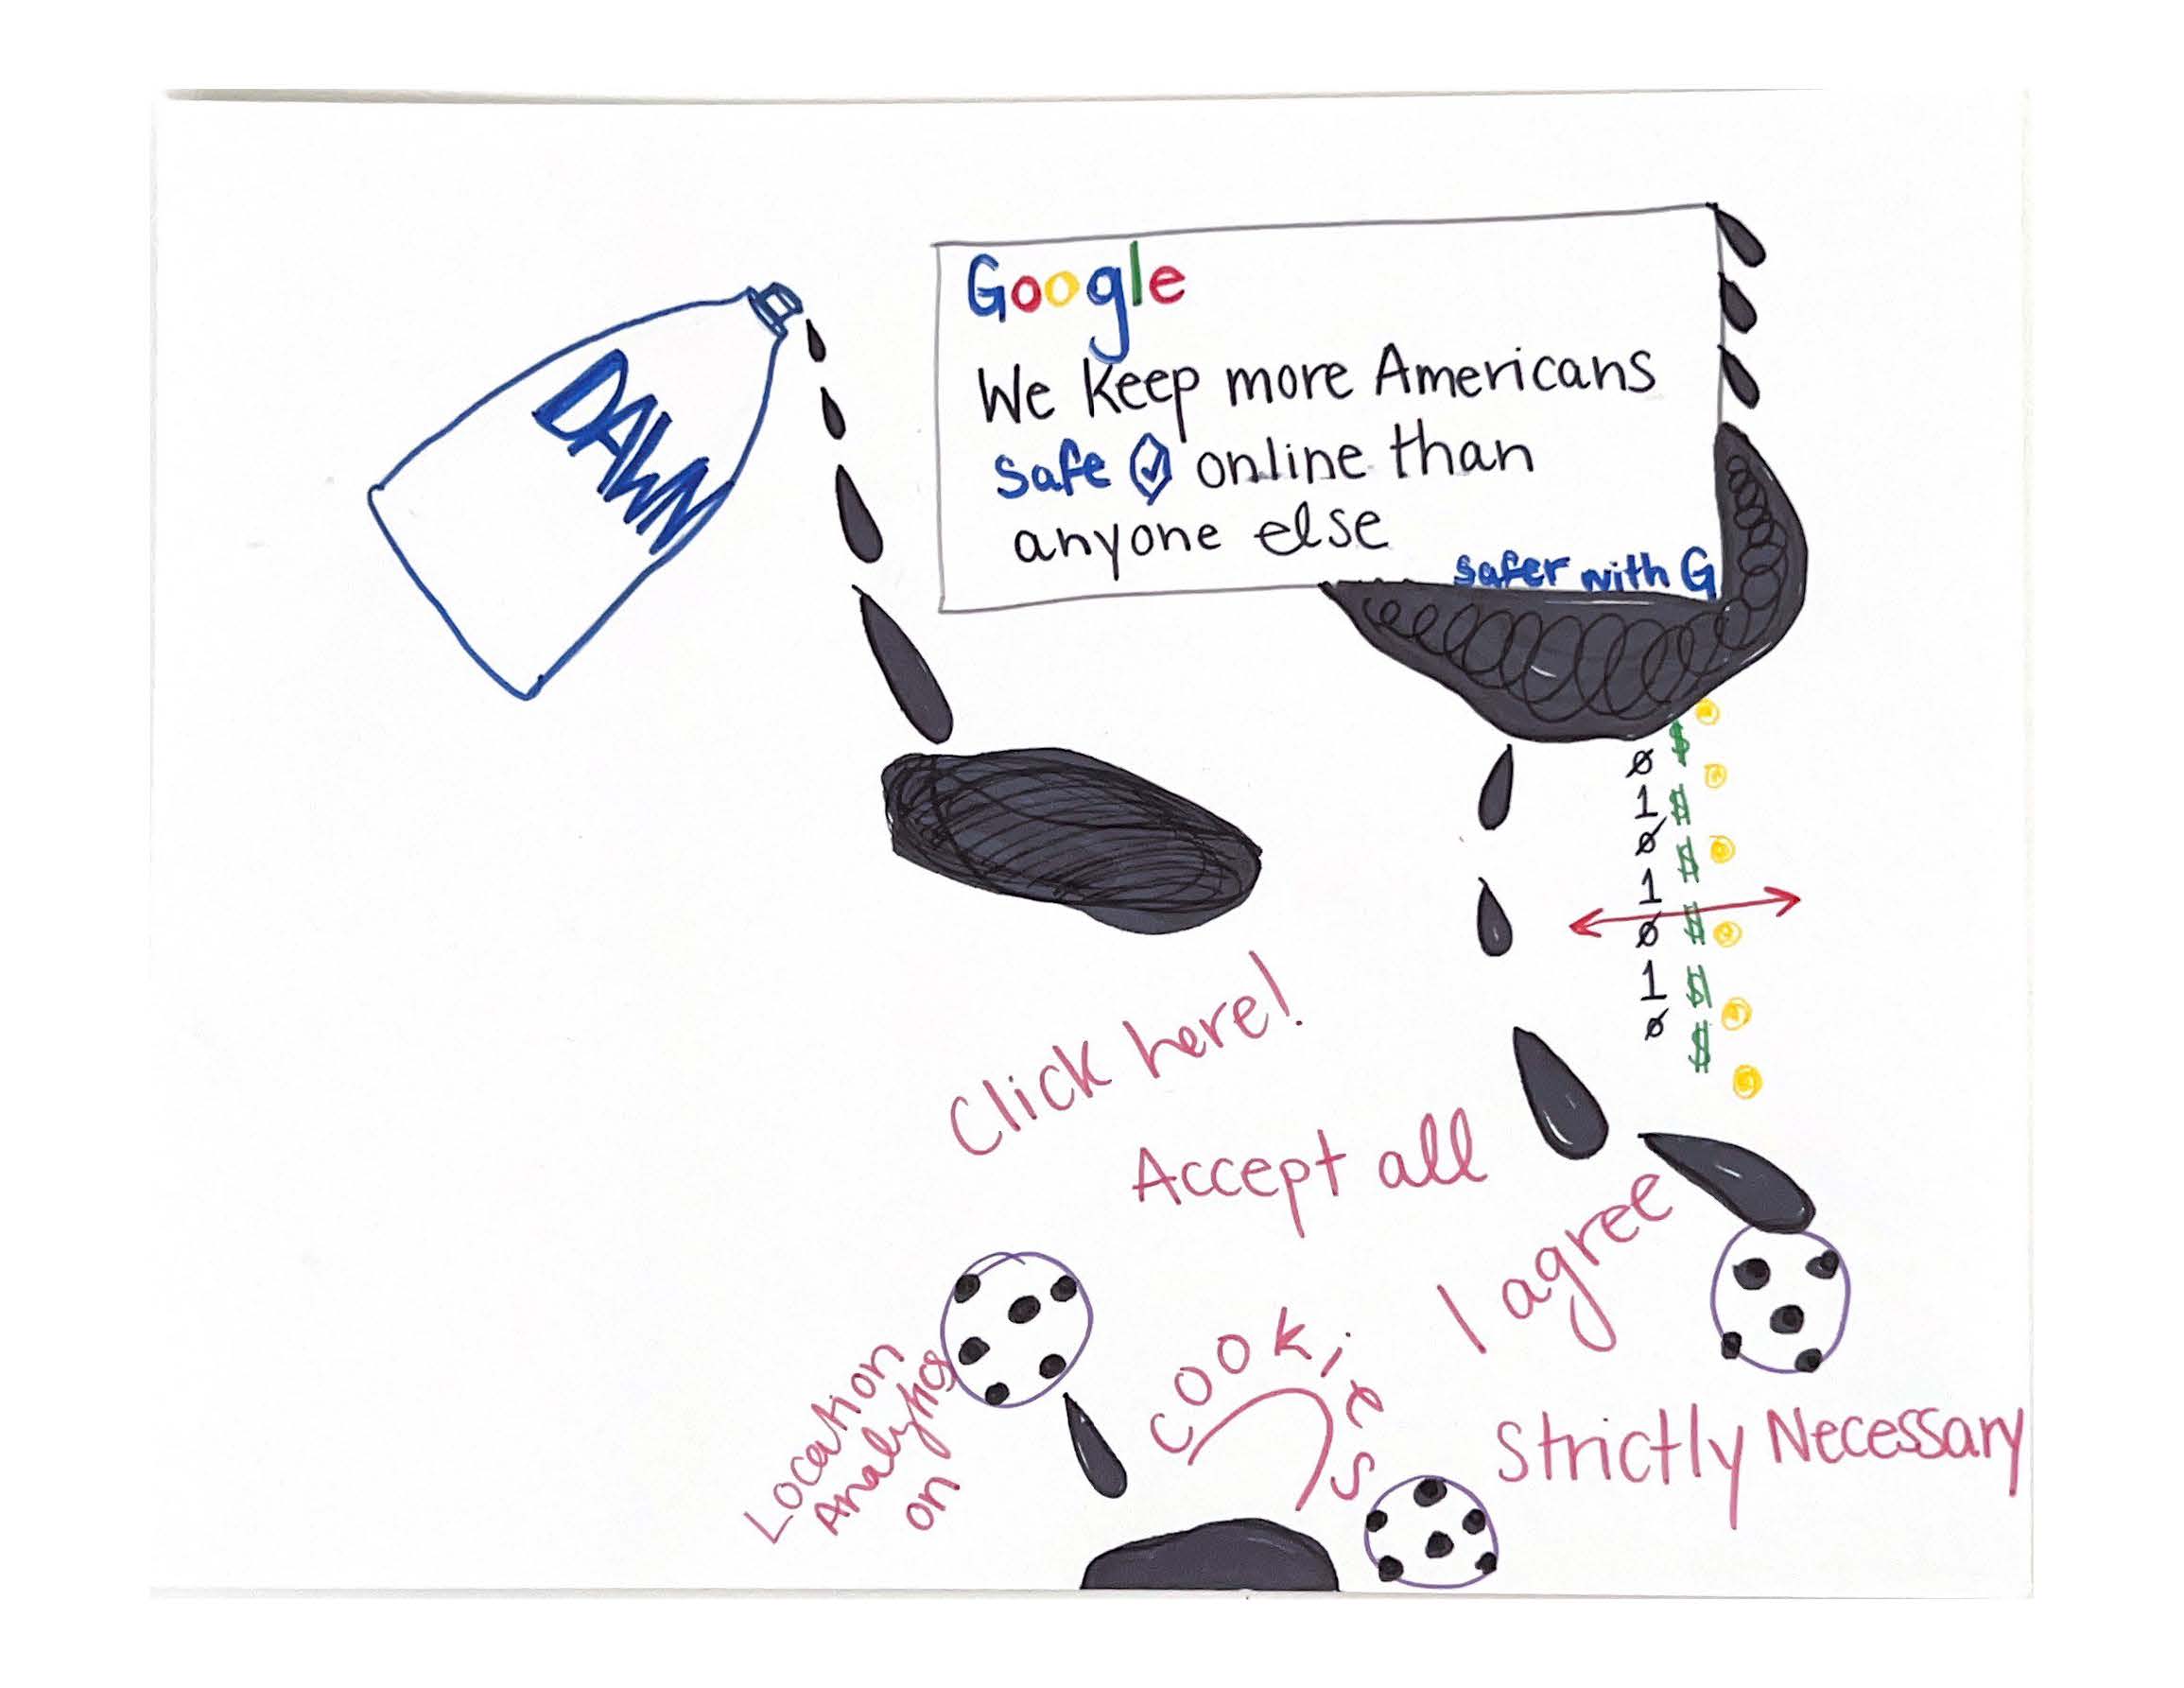 DAWN
Google
We keep more Americans
safe online than
anyone else
safer with G
0
$
1
$
0
$
1
0
$
1
$
0
$
Click here!
Accept all
I agree
Location
Analytics
on
cookies
Strictly Necessary